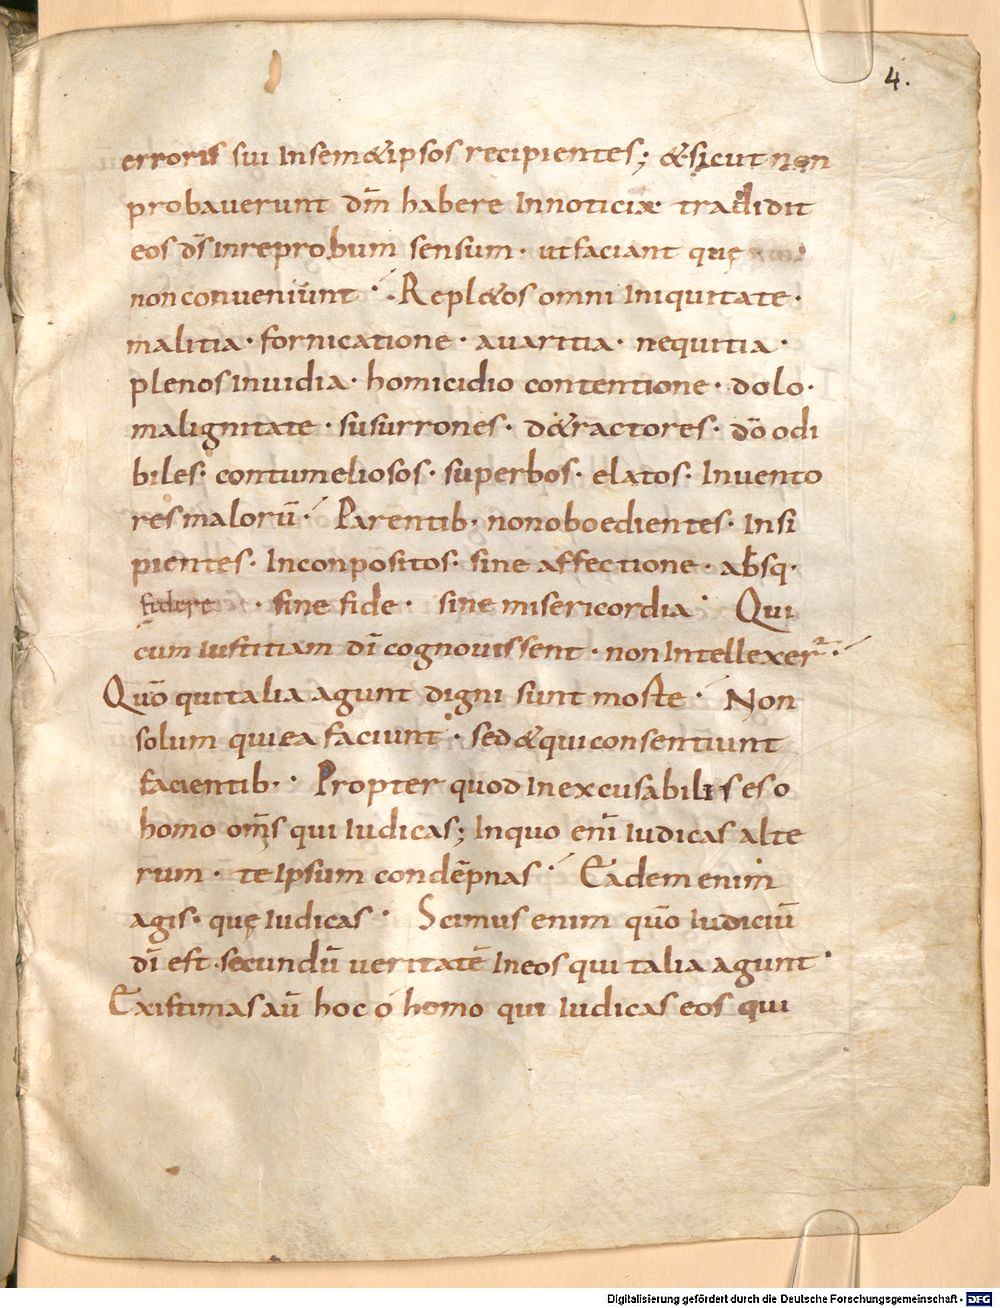 4.
erroris sui Insem&ipsos recipientes; &sicut non
probauerunt dm̄ habere Innoticiæ tradidit
eos ds̄ Inreprobum sensum · ut faciant quę
non conueniunt · Repl&os omni Iniquitate ·
malitia · fornicatione · auaritia · nequitia ·
plenos Inuidia · homicidio contentione · dolo ·
malignitate · susurrones · d&ractores · dō odi
biles · contumeliosos · superbos · elatos · Inuento
res malorū · Parentib · non oboedientes · Insi
pientes · Inconpositos · sine affectione · absq ·
· sine fide · sine misericordia · Qui
cum Iustitiam dī cognouissent · non Intellexer ·
Quō qui talia agunt digni sunt morte · Non
solum qui ea faciunt · sed & qui consentiunt
facientib · · Propter quod Inexcusabilis es o
homo om̄s qui Iudicas; Inquo enī Iudicas alte
rum · te Ipsum condēpnas · Eadem enim
agis · quę Iudicas · Scimus enim quō Iudiciū
dī est · secundū ueritatē Ineos qui talia agunt ·
Existimas aū hoc ó homo qui Iudicas eos qui
Digitalisierung gefördert durch die Deutsche Forschungsgemeinschaft - DFG